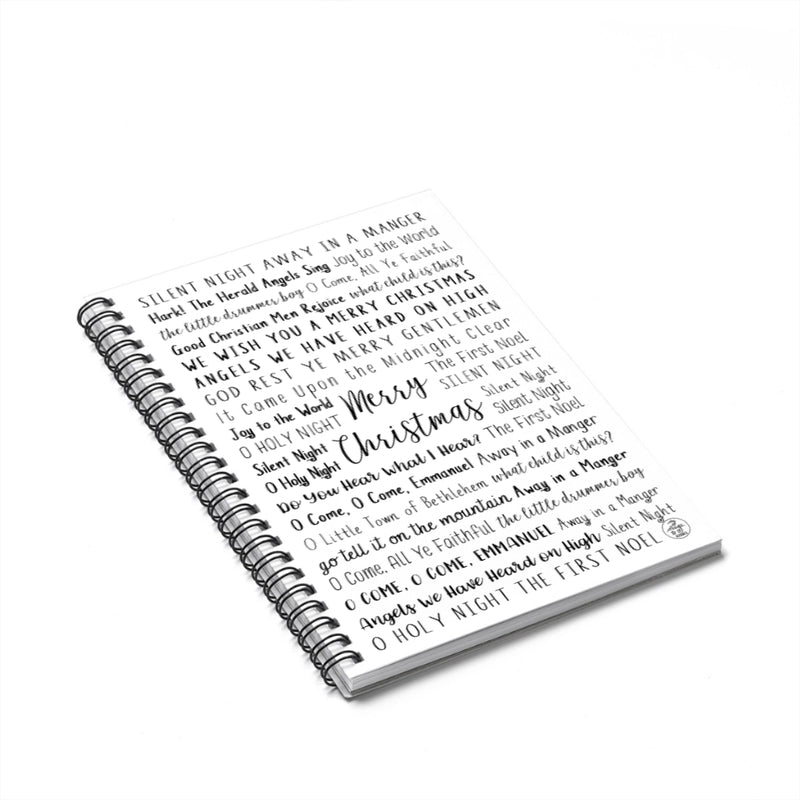 SILENT NIGHT AWAY IN A MANGER
Hark! The Herald Angels Sing Joy to the World
the little drummer boy O Come, All Ye Faithful
Good Christian Men Rejoice what child is this?
WE WISH YOU A MERRY CHRISTMAS
ANGELS WE HAVE HEARD ON HIGH
GOD REST YE MERRY GENTLEMEN
It Came Upon the Midnight Clear
Joy to the World Merry The First Noel
O HOLY NIGHT SILENT NIGHT
Silent Night Christmas Silent Night
O Holy Night Silent Night
Do You Hear What I Hear? The First Noel
O Come, O Come, Emmanuel Away in a Manger
O Little Town of Bethlehem what child is this?
go tell it on the mountain Away in a Manger
O Come, All Ye Faithful the little drummer boy
O COME, O COME, EMMANUEL Away in a Manger
Angels We Have Heard on High Silent Night
O HOLY NIGHT THE FIRST NOEL